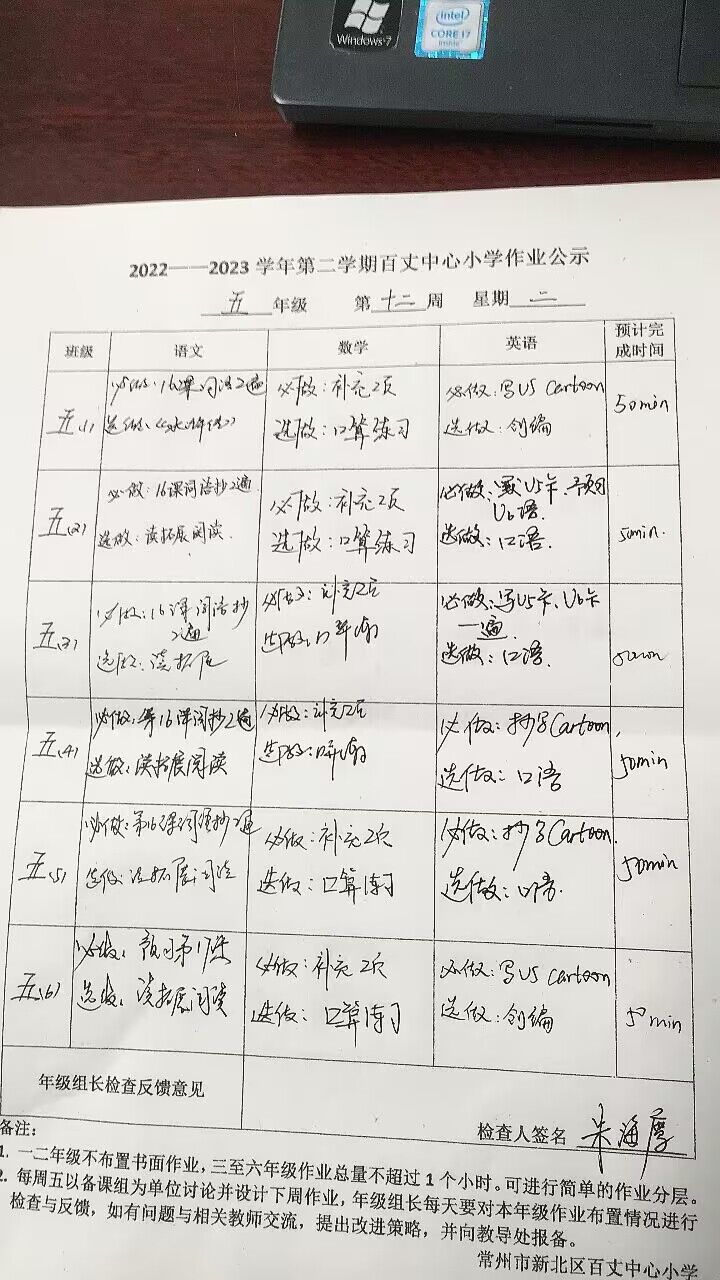 Windows 7
intel
CORE i7
inside
2022——2023 学年第二学期百丈中心小学作业公示
五 年级 第 十二 周 星期 二
班级 语文 数学 英语 预计完成时间
五(1) 必做:16课词语2遍 必做:补充2页 必做:写U5 Cartoon 50min
选做: 选做:口算练习 选做:创编
五(2) 必做:16课词语抄2遍 必做:补充2页 必做:默U5卡、预习U6语 50min.
选做:读拓展阅读. 选做:口算练习 选做:口语.
五(3) 必做:16课词语抄2遍 必做:补充2页 必做:写U5卡、U6卡一遍 50min
选做:读拓展 选做:口算练习 选做:口语.
五(4) 必做:第16课词抄2遍 必做:补充2页 必做:抄写Cartoon, 50min
选做:读拓展阅读 选做:口算练习 选做:口语
五(5) 必做:第16课词语抄2遍 必做:补充2页 必做:抄写Cartoon. 50min
选做:读拓展阅读 选做:口算练习 选做:口语.
五(6) 必做:预习第17课 必做:补充2页 必做:写U5 Cartoon 50min
选做:读拓展阅读 选做:口算练习 选做:创编
年级组长检查反馈意见
检查人签名 朱海
备注:
1. 一二年级不布置书面作业,三至六年级作业总量不超过 1 个小时。可进行简单的作业分层。
2. 每周五以备课组为单位讨论并设计下周作业,年级组长每天要对本年级作业布置情况进行
检查与反馈,如有问题与相关教师交流,提出改进策略,并向教导处报备。
常州市新北区百丈中心小学